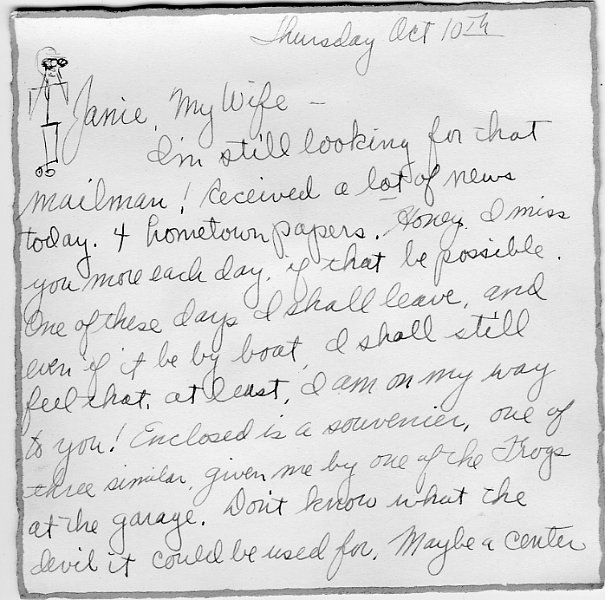 Thursday Oct 10th
Janie, My Wife —
I'm still looking for that
mailman! Received a lot of news
today. 4 hometown papers. Honey I miss
you more each day, if that be possible.
One of these days I shall leave, and
even if it be by boat, I shall still
feel that, at least, I am on my way
to you! Enclosed is a souvenier, one of
three similar, given me by one of the Frogs
at the garage. Don't know what the
devil it could be used for. Maybe a center